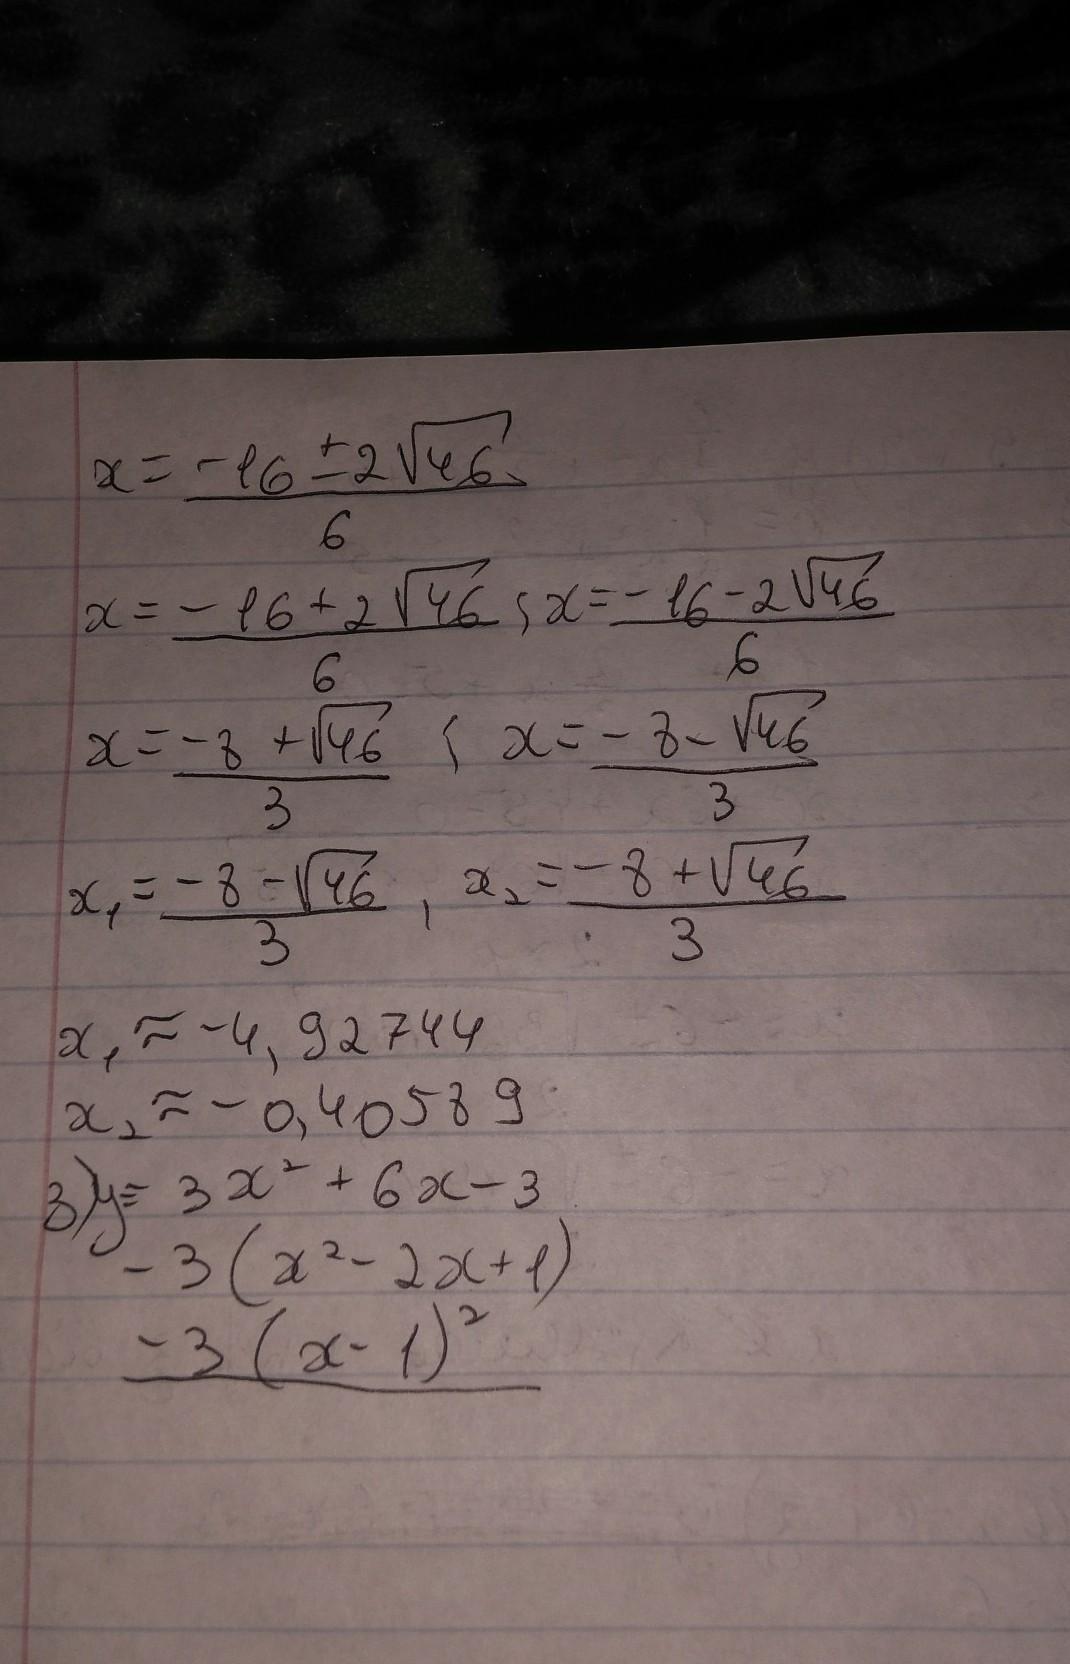 x = (-16 ± 2√46) / 6
x = (-16 + 2√46) / 6 ; x = (-16 - 2√46) / 6
x = (-8 + √46) / 3 ; x = (-8 - √46) / 3
x₁ = (-8 - √46) / 3 , x₂ = (-8 + √46) / 3
x₁ ≈ -4,92744
x₂ ≈ -0,40589
3) y = 3x² + 6x - 3
-3(x² - 2x + 1)
-3(x - 1)²